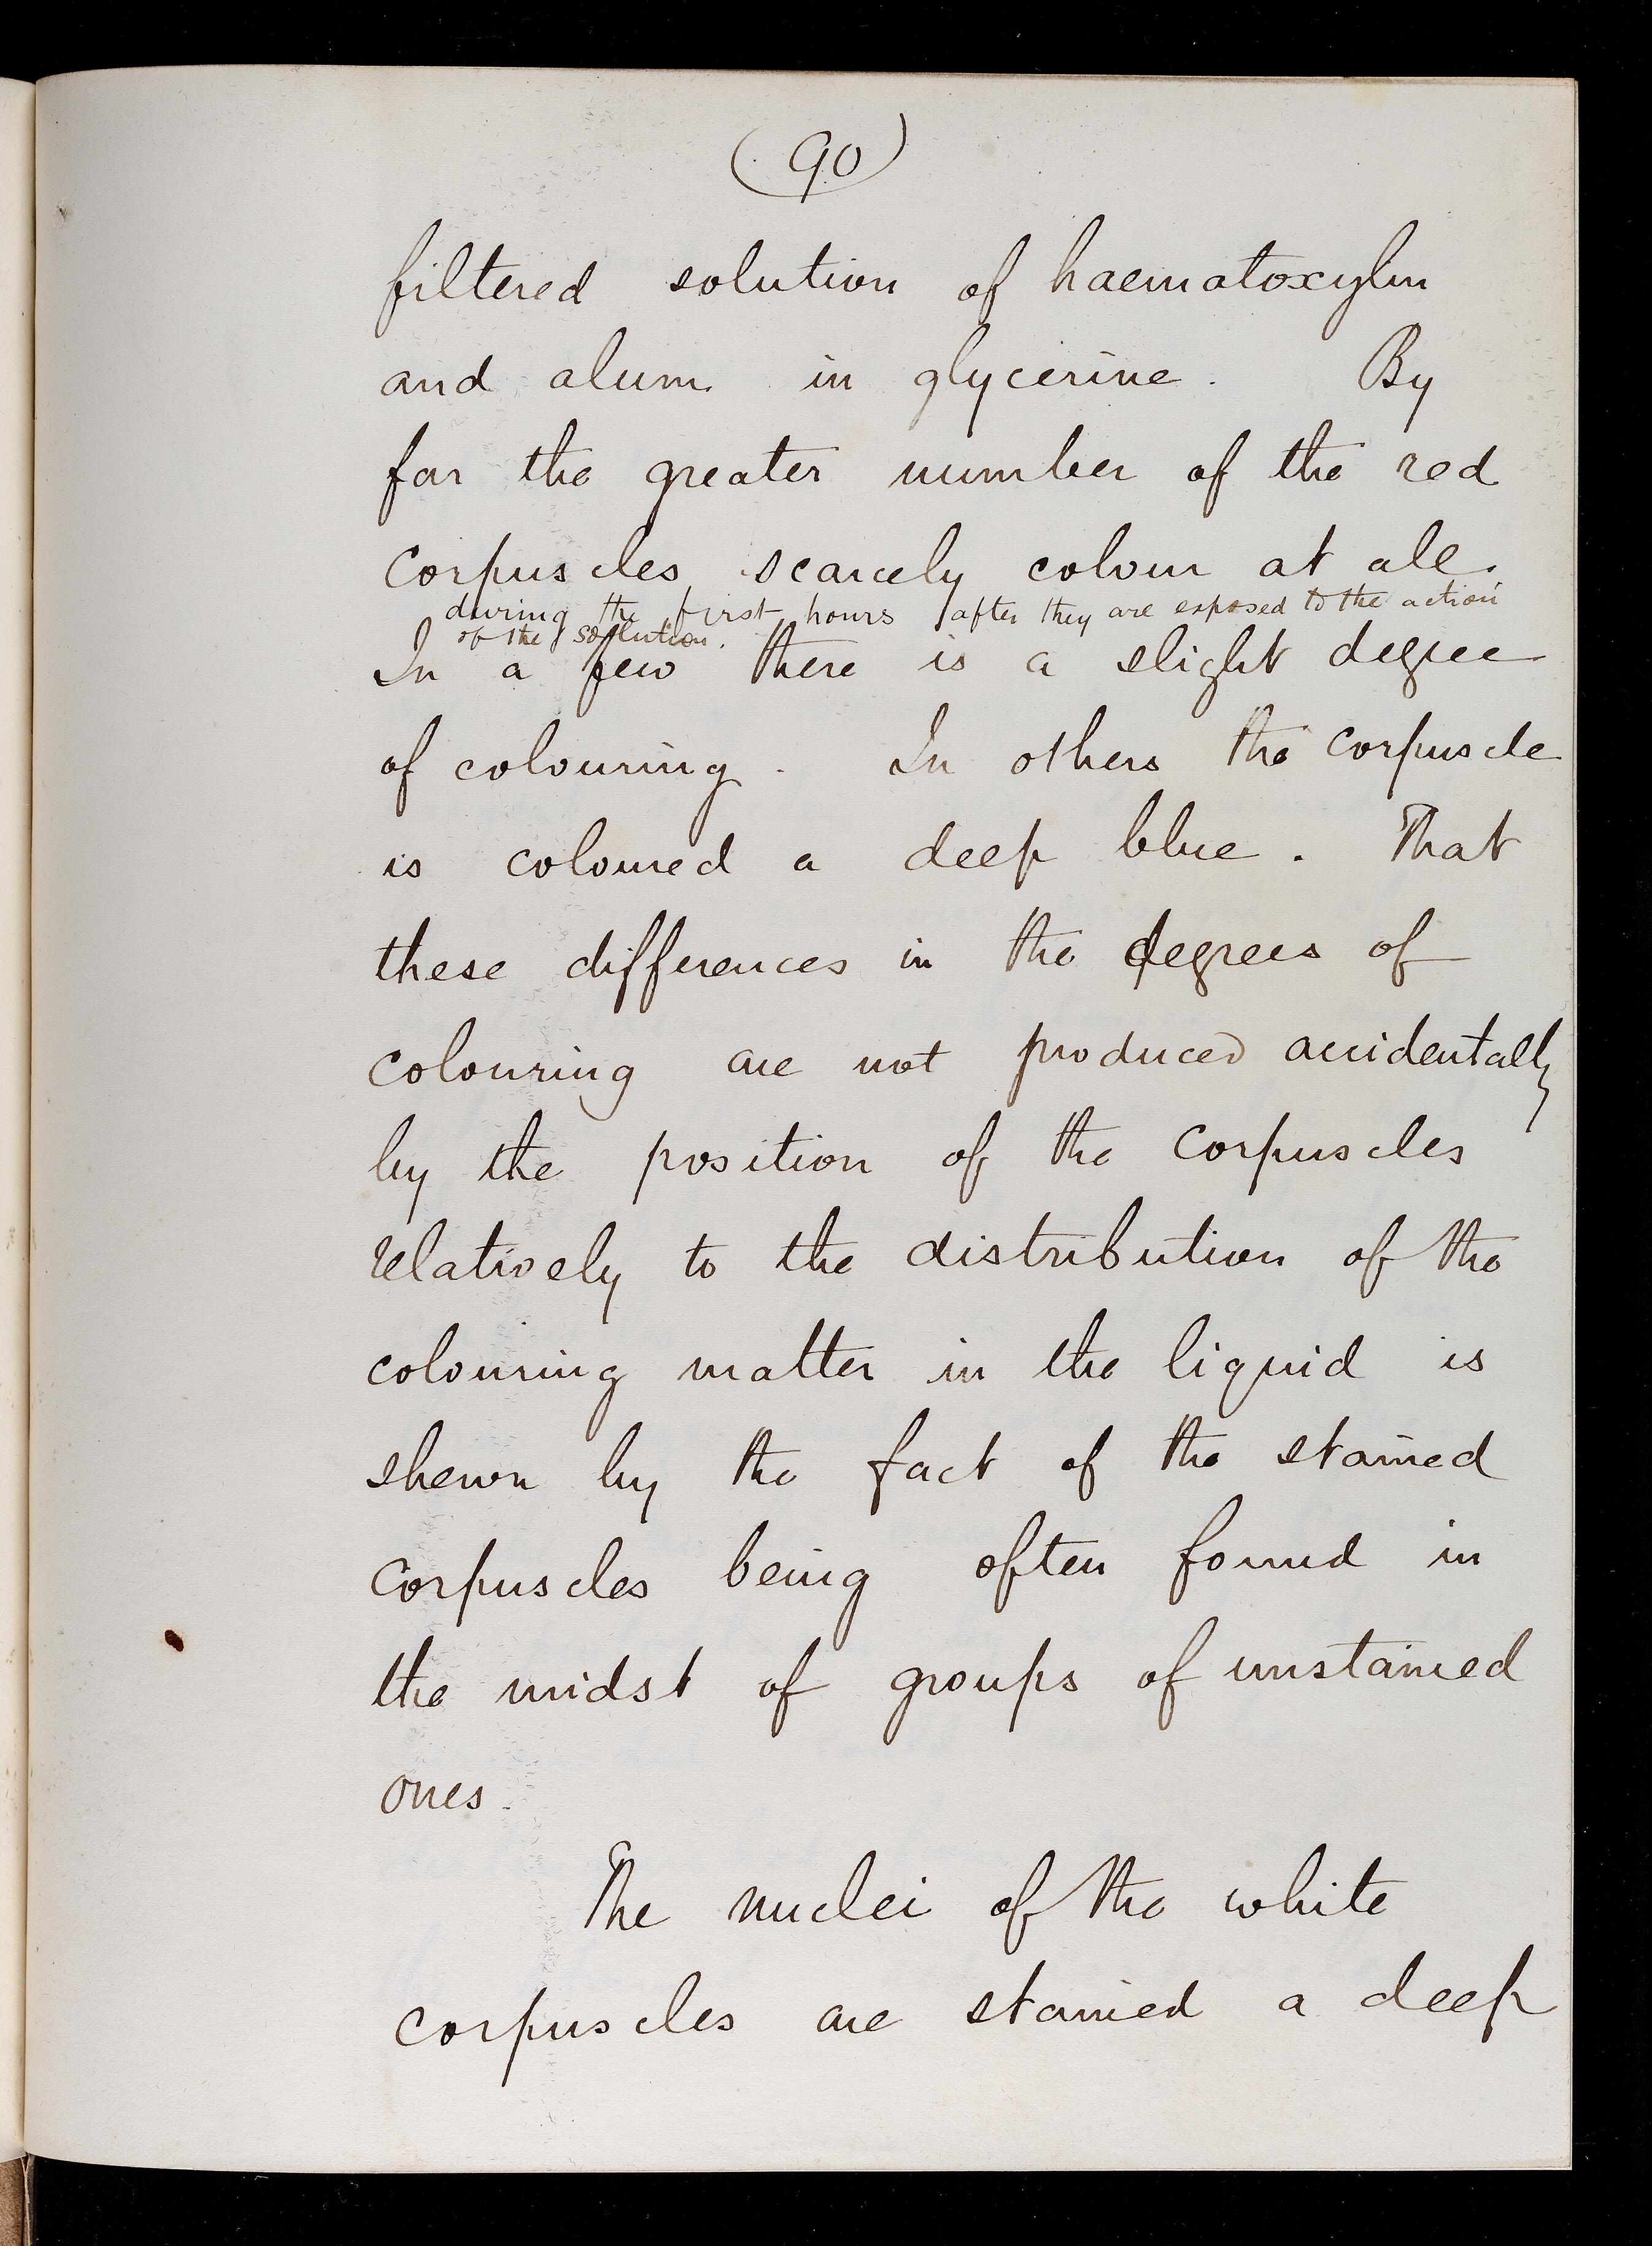 (90)
filtered solution of haematoxylin
and alum in glycerine. By
far the greater number of the red
corpuscles scarcely colour at all.
during the first hours after they are exposed to the action
of the solution.
In a few there is a slight degree
of colouring. In others the corpuscle
is coloured a deep blue. That
these differences in the degrees of
colouring are not produced accidentally
by the position of the corpuscles
relatively to the distribution of the
colouring matter in the liquid is
shewn by the fact of the stained
corpuscles being often found in
the midst of groups of unstained
ones.
The nuclei of the white
corpuscles are stained a deep